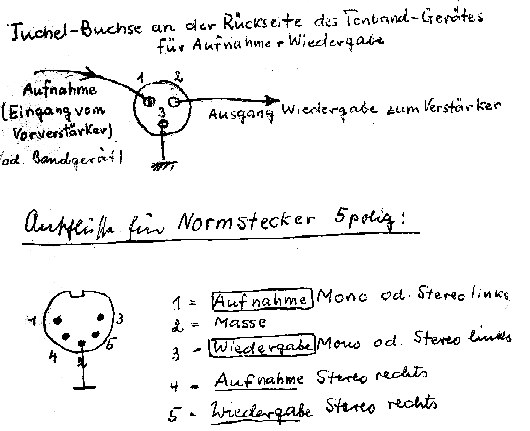 Tuchel-Buchse an der Rückseite des Tonband-Gerätes
für Aufnahme + Wiedergabe
1 2
3
Aufnahme
(Eingang vom
Vorverstärker)
od. Bandgerät)
Ausgang Wiedergabe zum Verstärker
Anschlüsse für Normstecker 5polig:
1 3
4 5
2
1 = Aufnahme Mono od. Stereo links
2 = Masse
3 - Wiedergabe Mono od. Stereo links
4 - Aufnahme Stereo rechts
5 - Wiedergabe Stereo rechts